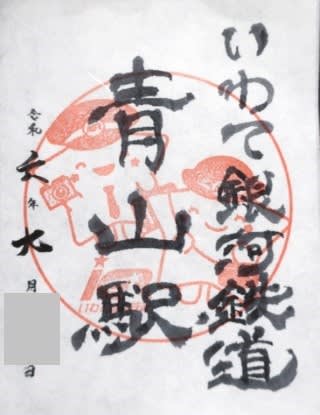 いわて銀河鉄道
青山駅
令和六年九月 日